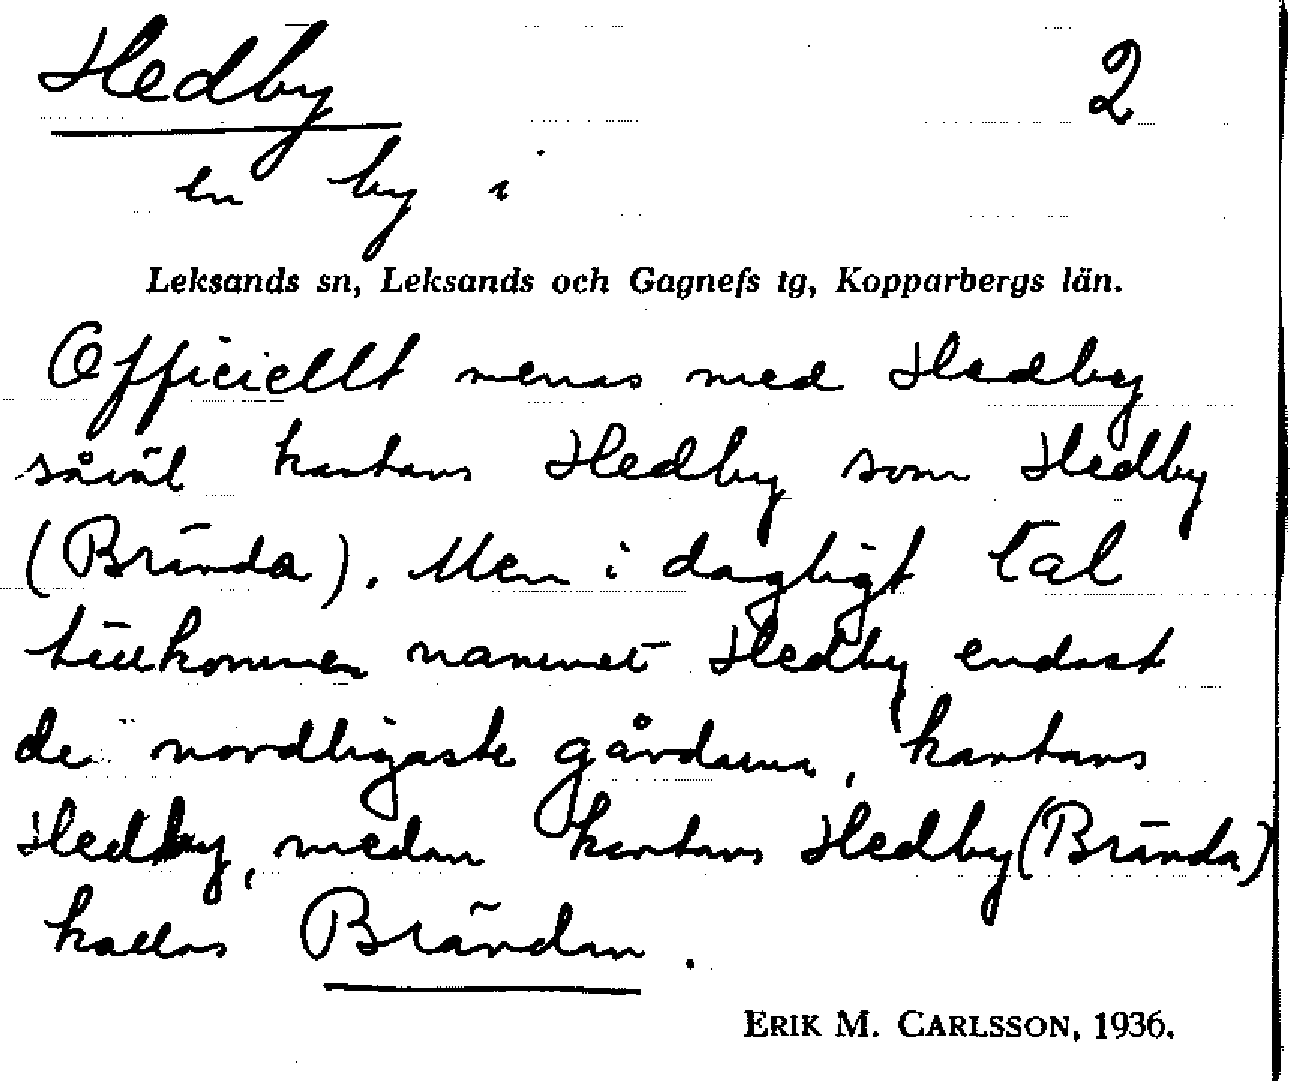 Hedby 2
en by i
Leksands sn, Leksands och Gagnefs tg, Kopparbergs län.
Officiellt menas med Hedby
såväl kartans Hedby som Hedby
(Brända). Men i dagligt tal
tillkommer namnet Hedby endast
de nordligaste gårdarna, kartans
Hedby, medan kartans Hedby (Brända)
kallas Brändan.
ERIK M. CARLSSON, 1936.